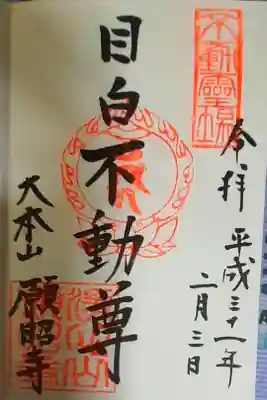 奉拝
平成三十一年
二月三日
目白不動尊
大本山
願昭寺
不動霊場